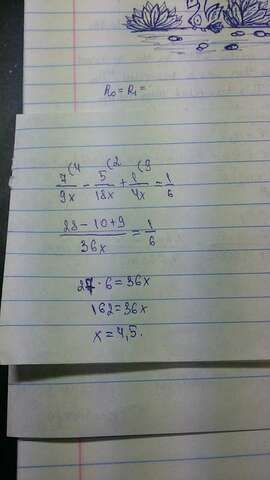 R₀ = R₁ =
7(4/9x − 5(2/18x + 1(9/4x = 1/6
28 − 10 + 9/36x = 1/6
27 · 6 = 36x
162 = 36x
x = 4,5.